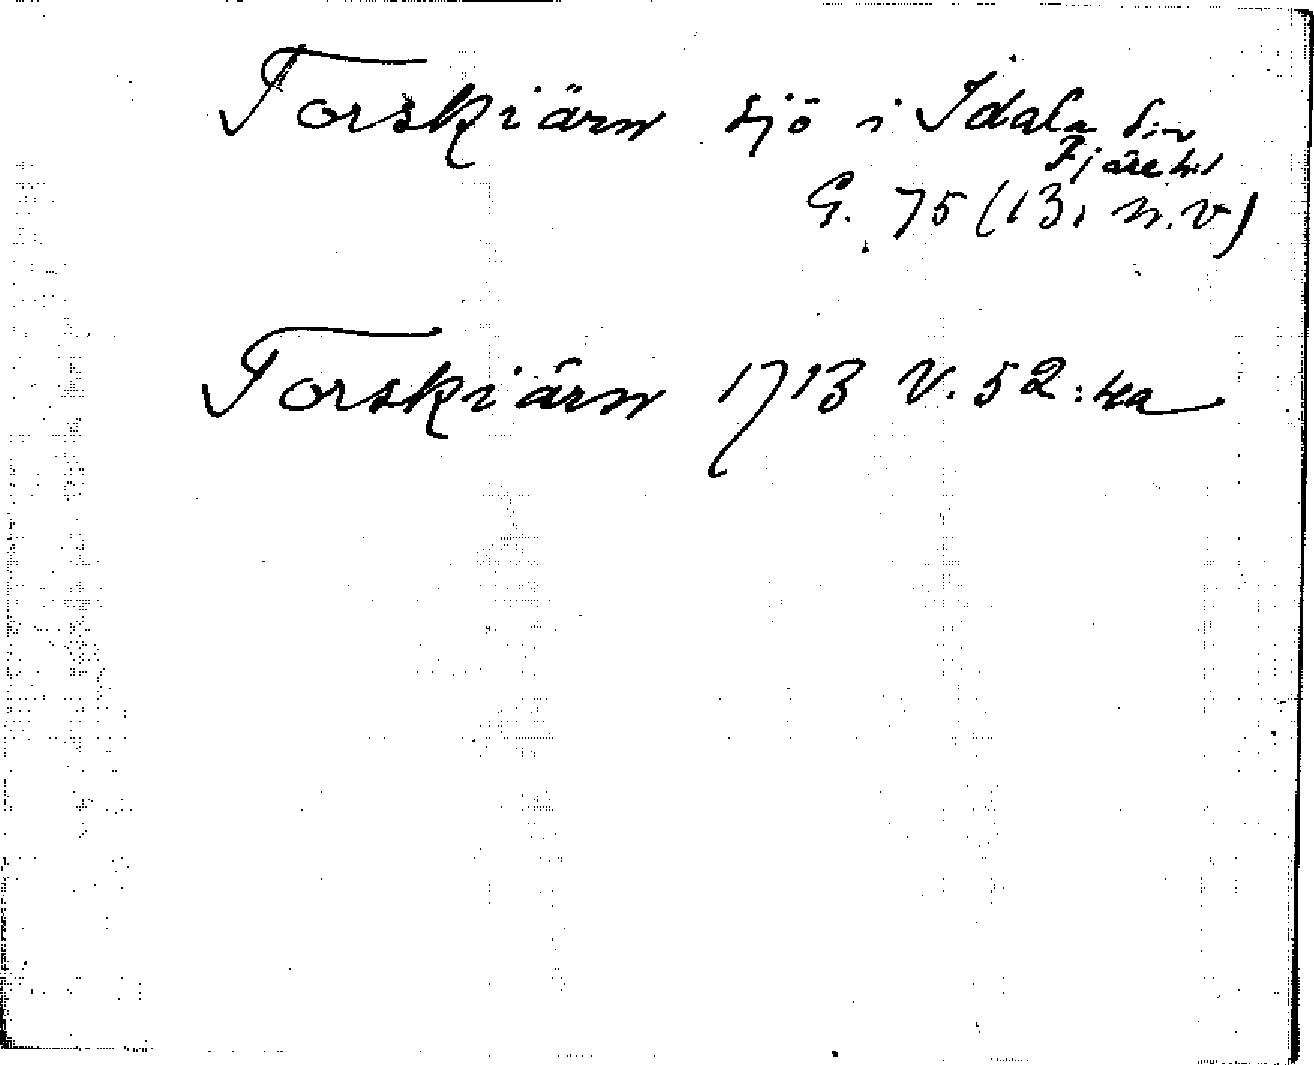 Torskiärn sjö i Idala sn
Fjäre hd
G. 75 (13, n.v)
Torskiärn 1713 V. 52: